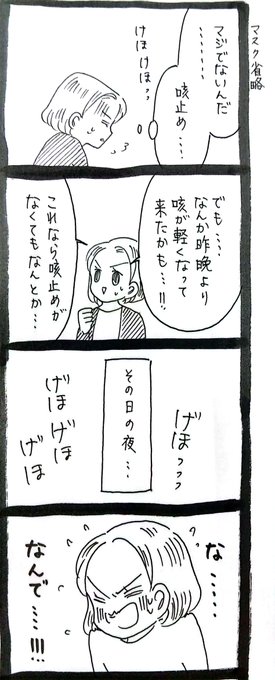 マスク省略
マジでないんだ
‥‥‥‥
咳止め‥‥
げほ げほっ
でも‥‥
なんか昨晩より
咳が軽くなって
来たかも‥‥!!
これなら咳止めが
なくてもなんとか‥‥
その日の夜‥‥
げほっっっ
げほ げほ
げほ
な‥‥‥
なんで‥‥‥!!!